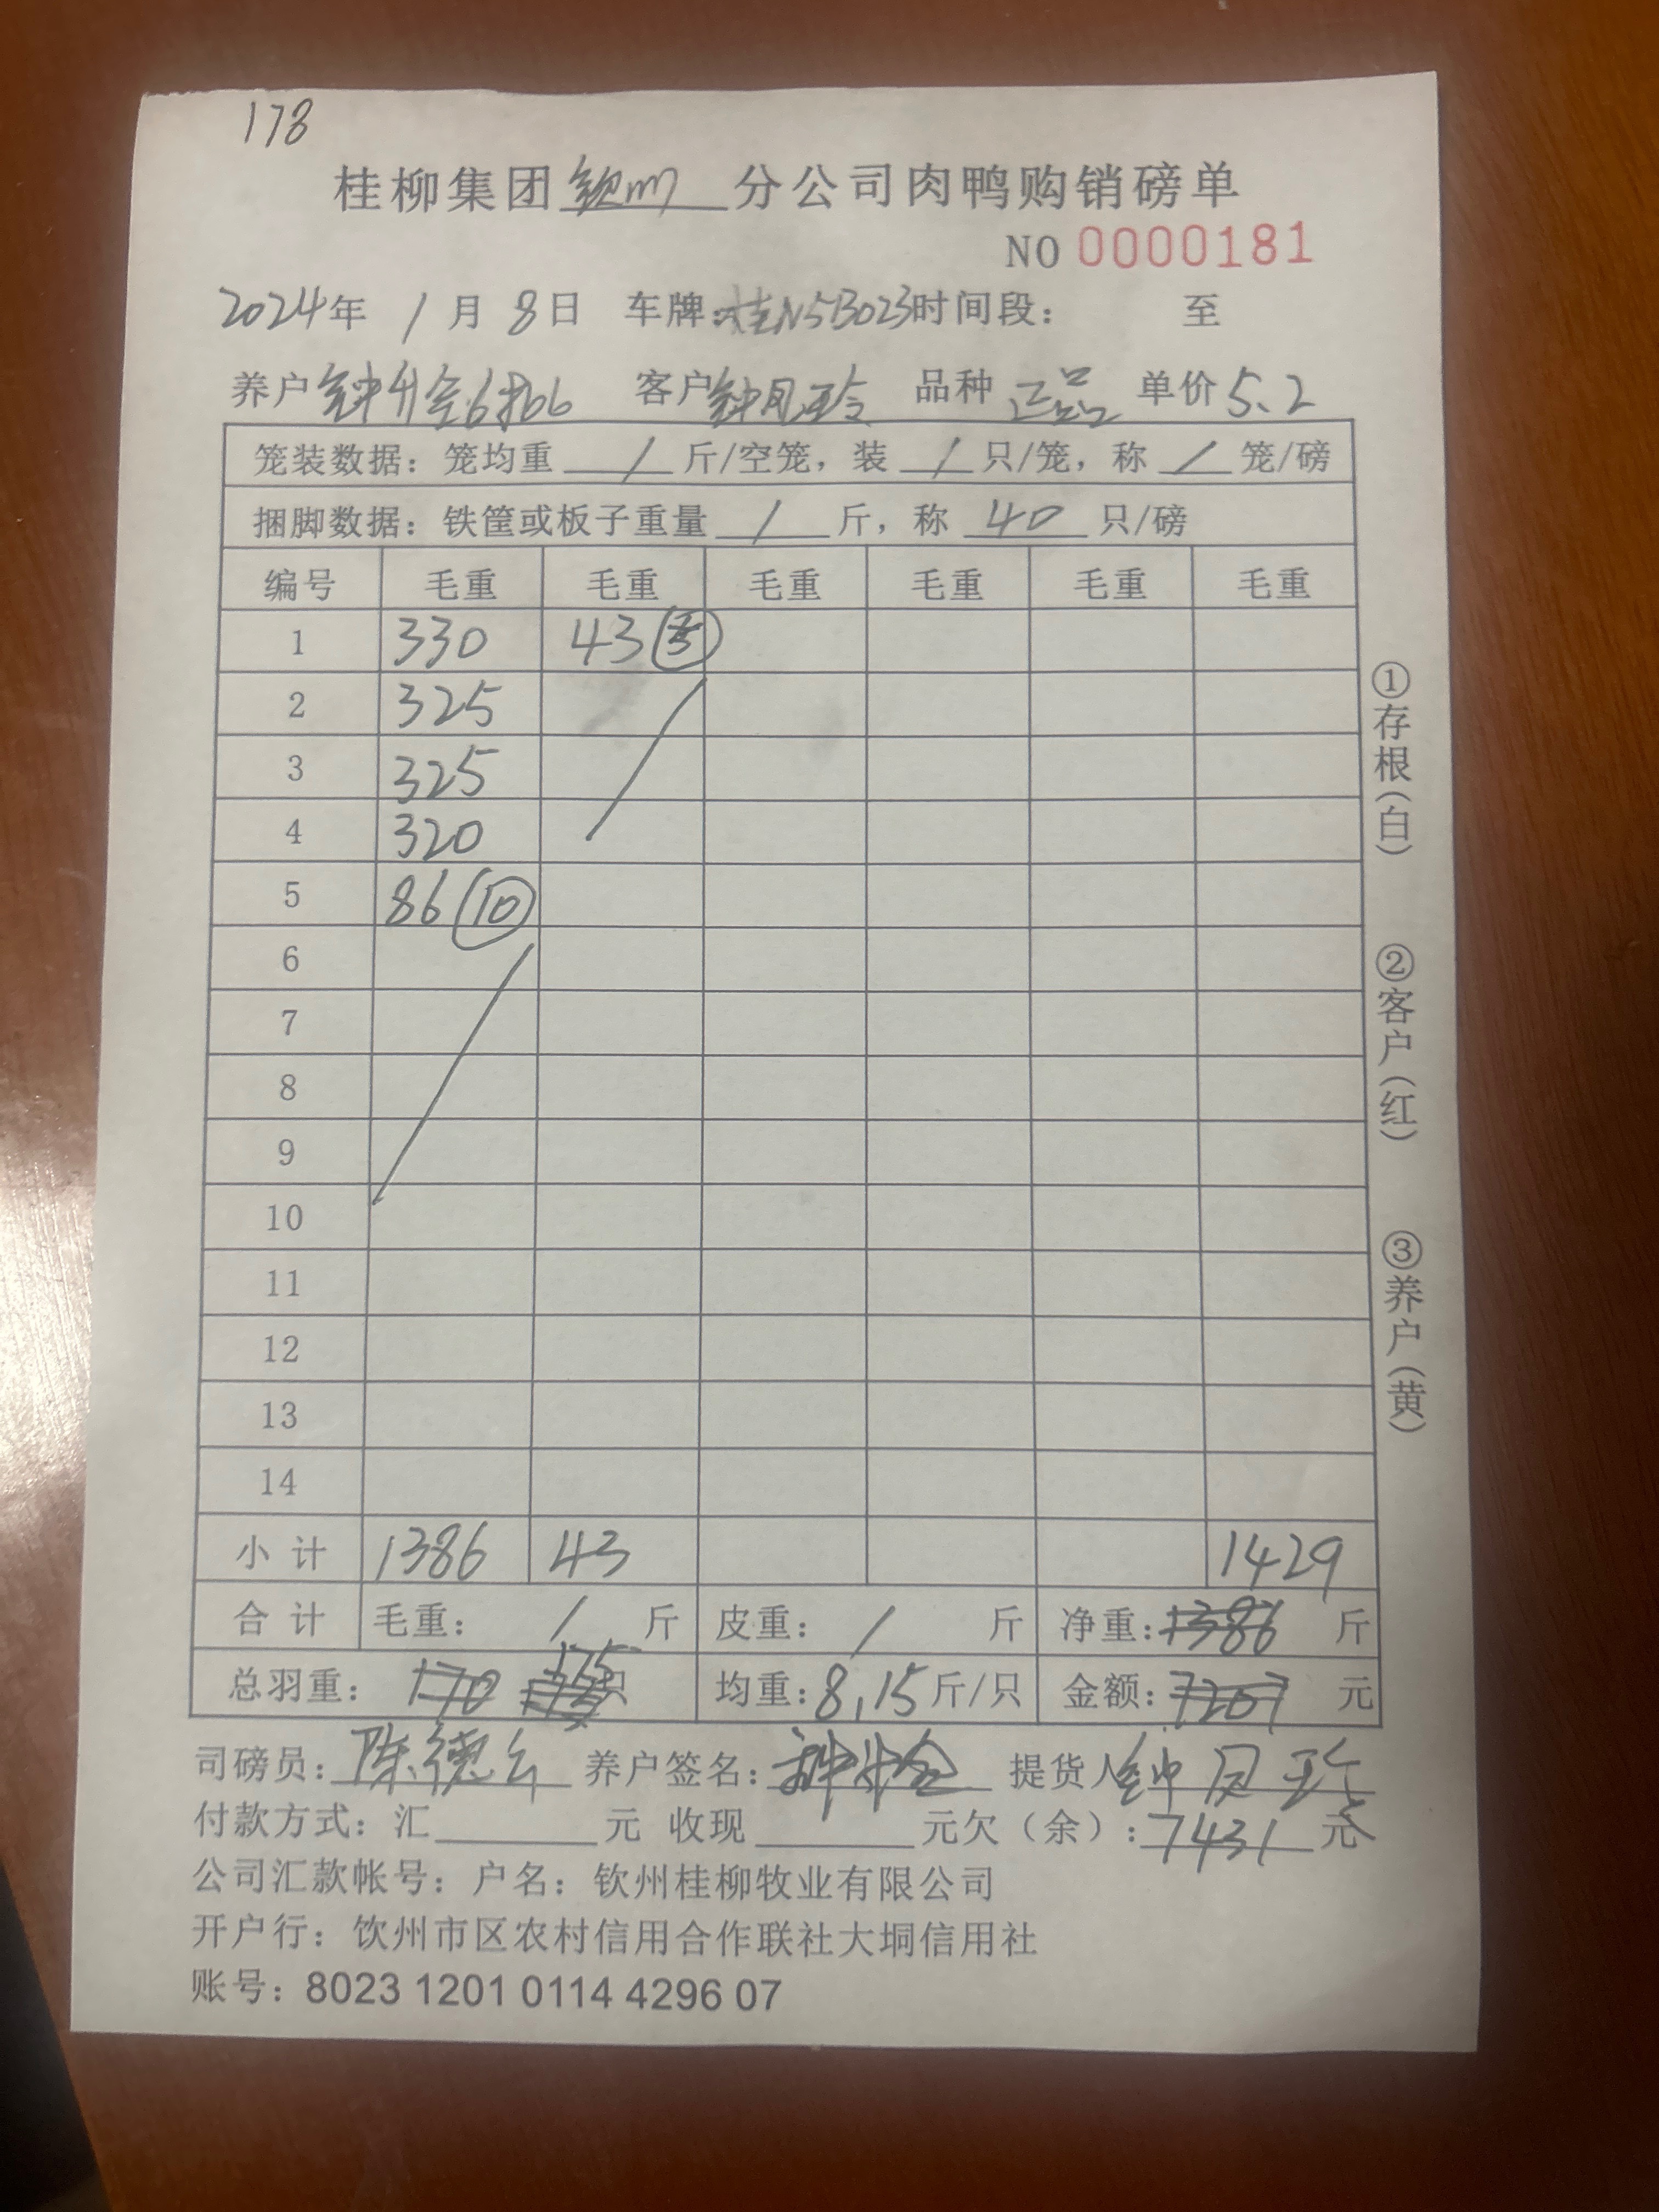 178
桂柳集团钦州分公司肉鸭购销磅单
NO 0000181
2024年 1月 8日 车牌:桂N5B023时间段: 至
养户钟升全6批6 客户钟凤玲 品种 正品 单价5.2
笼装数据: 笼均重 / 斤/空笼, 装 / 只/笼, 称 / 笼/磅
捆脚数据: 铁筐或板子重量 / 斤, 称 40 只/磅
编号 毛重 毛重 毛重 毛重 毛重 毛重
1 330 43⑤
2 325
3 325
4 320
5 86⑩
6
7
8
9
10
11
12
13
14
小 计 1386 43 1429
合 计 毛重: / 斤 皮重: / 斤 净重:1386 斤
总羽重: 170 175只 均重:8.15斤/只 金额:7207 元
司磅员:陈德 养户签名: 提货人钟凤玲
付款方式: 汇 元 收现 元欠(余):7431元
公司汇款帐号: 户名: 钦州桂柳牧业有限公司
开户行: 饮州市区农村信用合作联社大垌信用社
账号: 8023 1201 0114 4296 07
①存根(白)
②客户(红)
③养户(黄)